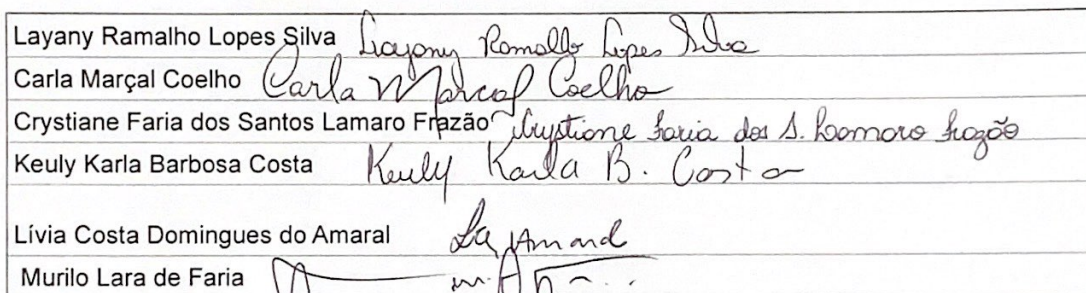 Layany Ramalho Lopes Silva Layany Ramalho Lopes Silva
Carla Marçal Coelho Carla Marçal Coelho
Crystiane Faria dos Santos Lamaro Frazão Crystiane Faria dos S. Lamaro Frazão
Keuly Karla Barbosa Costa Keuly Karla B. Costa
Lívia Costa Domingues do Amaral
Murilo Lara de Faria